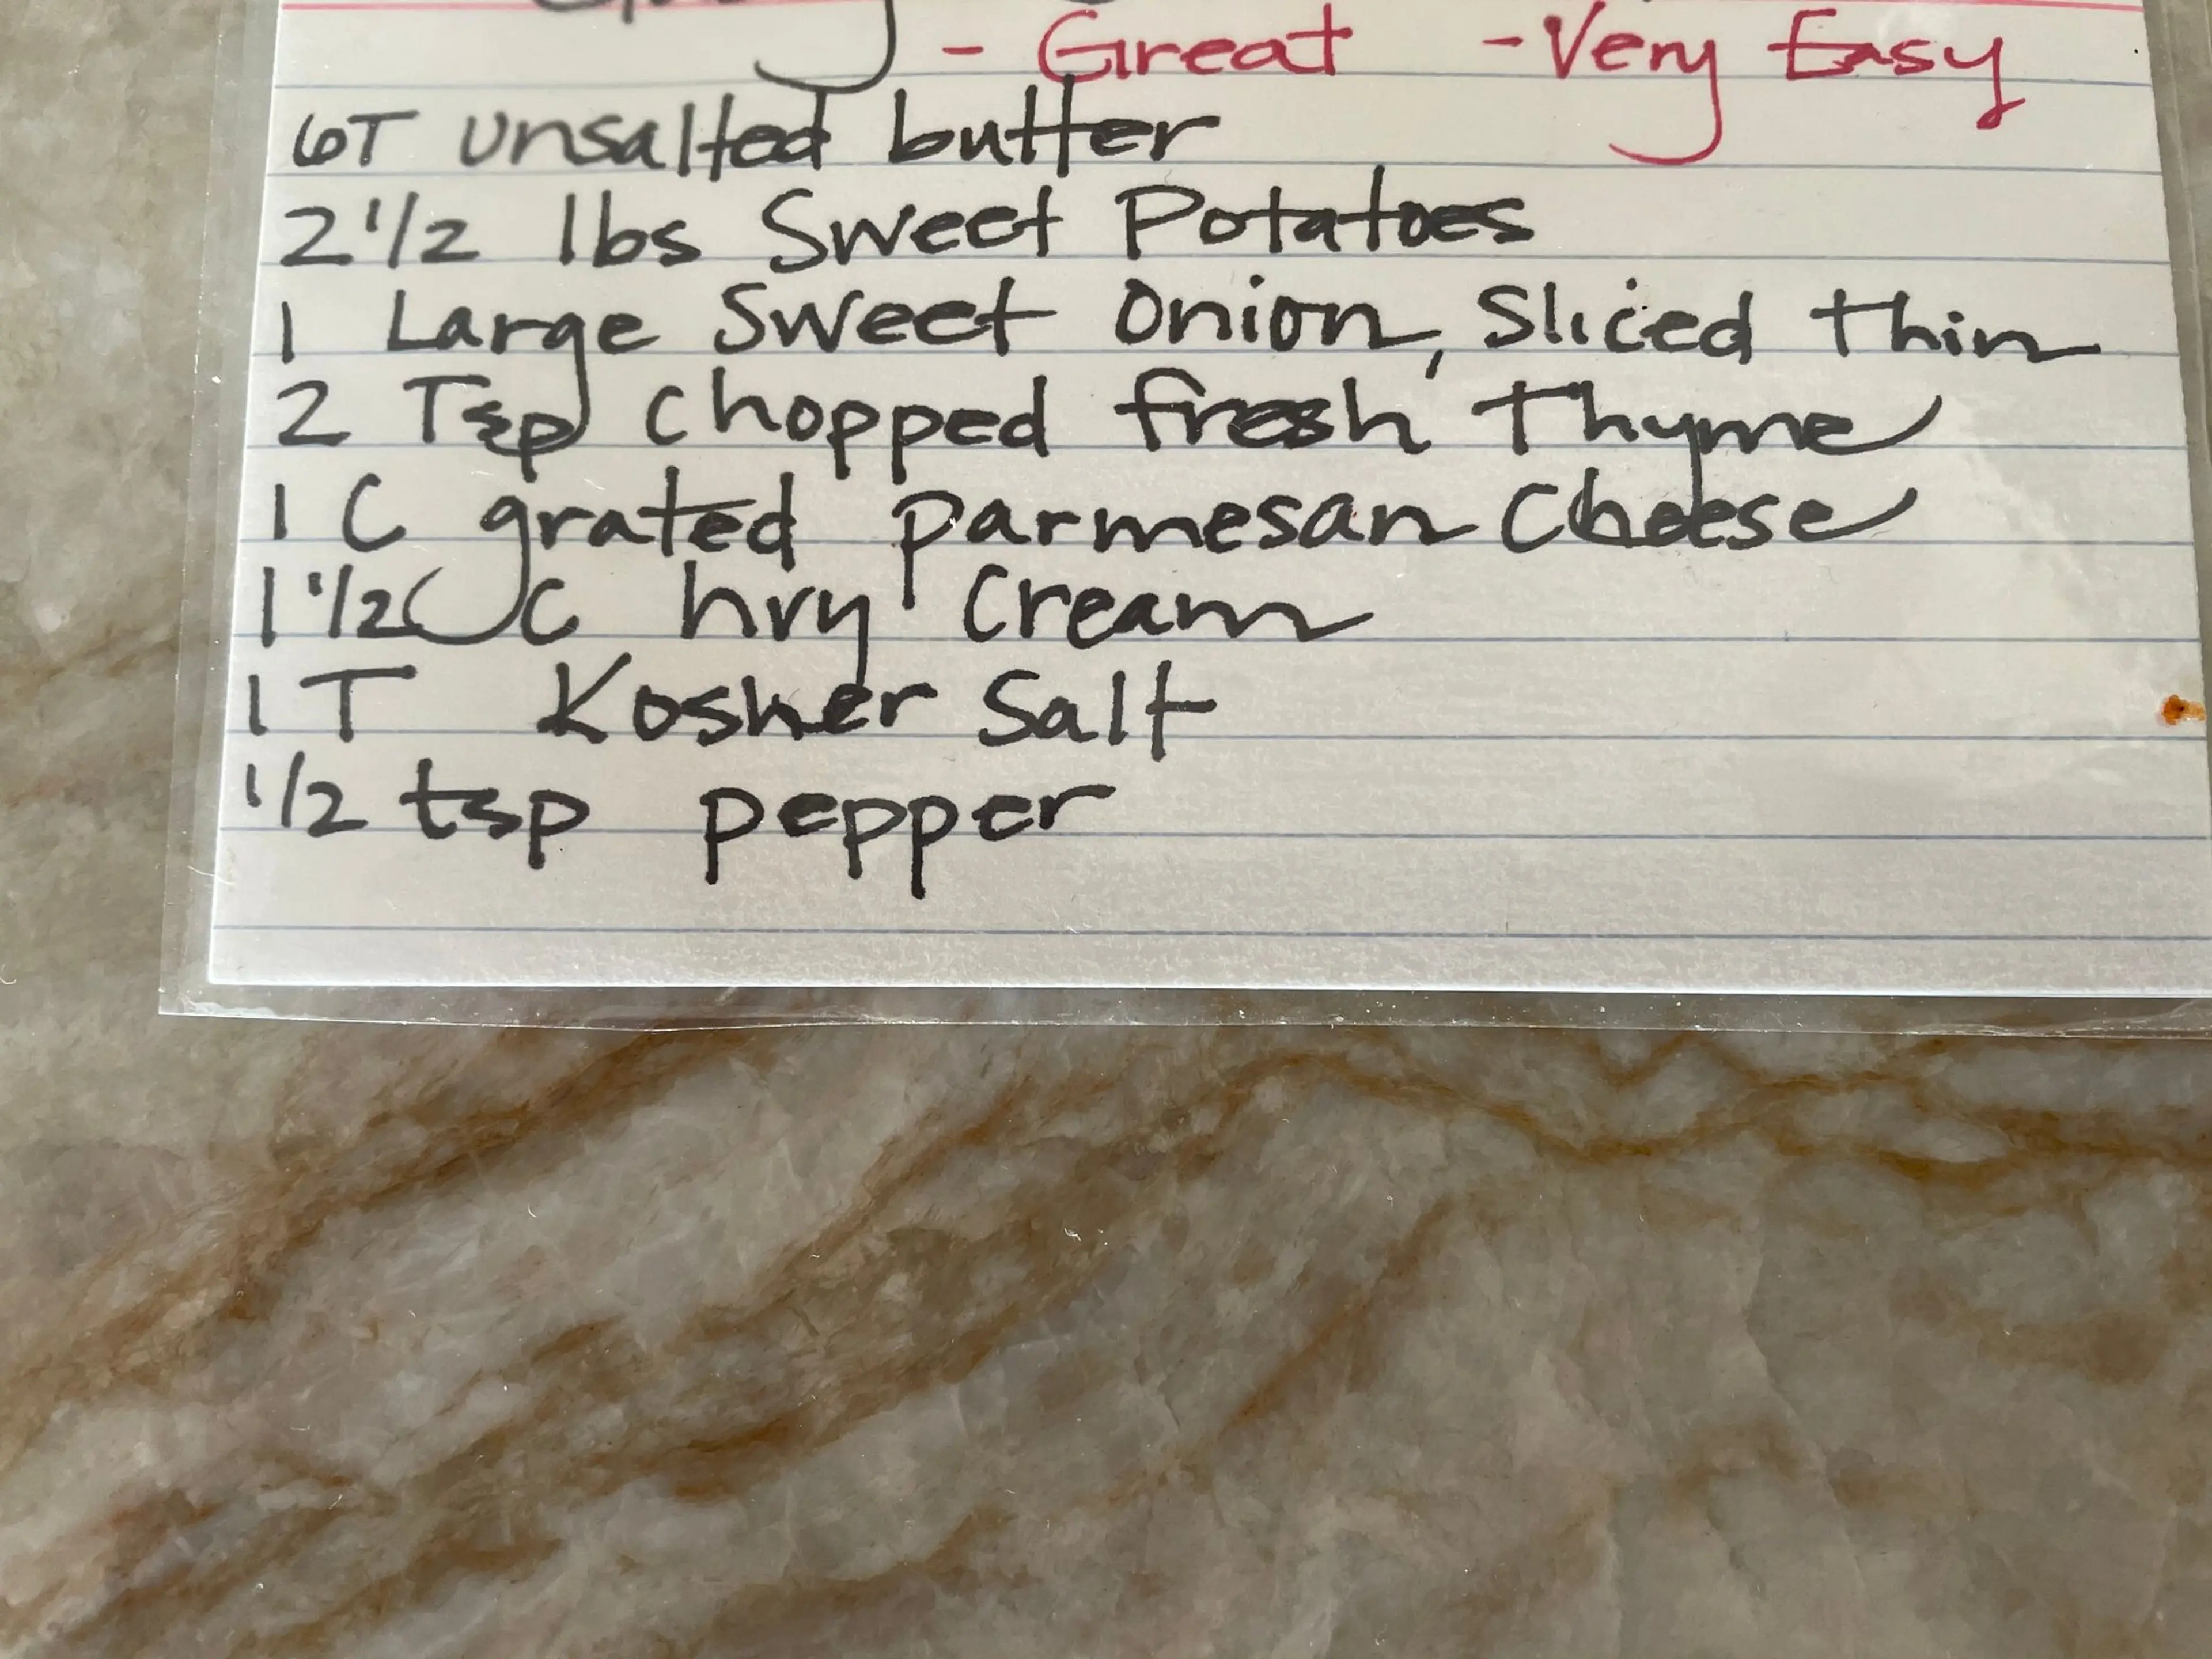 - Great - Very Easy
6T unsalted butter
2 1/2 lbs Sweet Potatoes
1 Large Sweet Onion, Sliced thin
2 Tsp chopped fresh Thyme
1 C grated parmesan Cheese
1 1/2 C hvy Cream
1 T Kosher Salt
1/2 tsp pepper